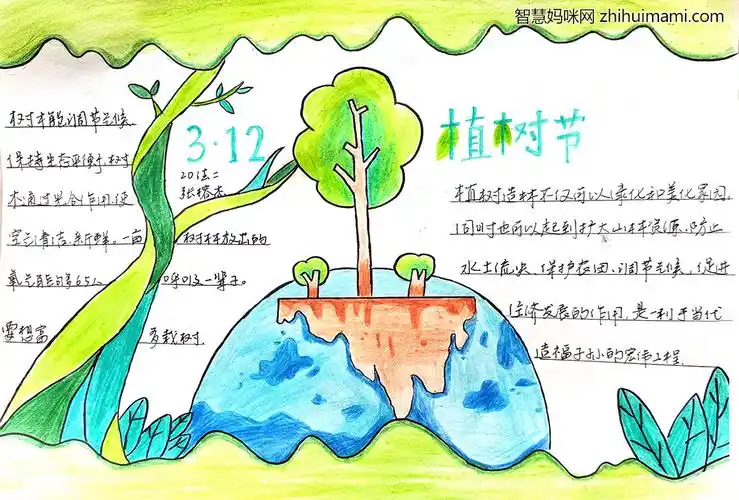 智慧妈咪网 zhihuimami.com
3·12
植树节
20法二
树木能调节气候
保持生态平衡,树
木通过光合作用,使
空气清洁、新鲜,一亩
树林放出的
氧气能够65人
呼吸一辈子。
要想富
多栽树
植树造林不仅可以绿化和美化家园,
同时也可以起到扩大山林资源、防止
水土流失、保护农田、调节气候、促进
经济发展的作用,是一利于当代
造福子孙的宏伟工程